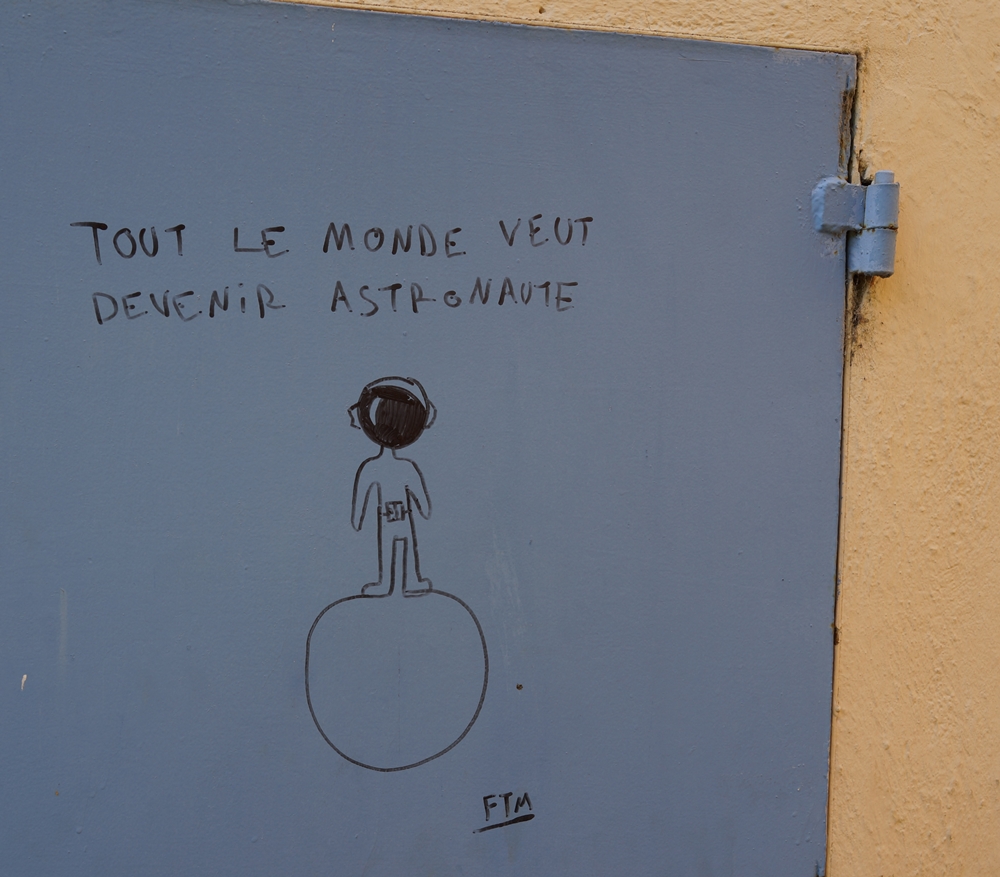 TOUT LE MONDE VEUT
DEVENIR ASTRONAUTE
FTM